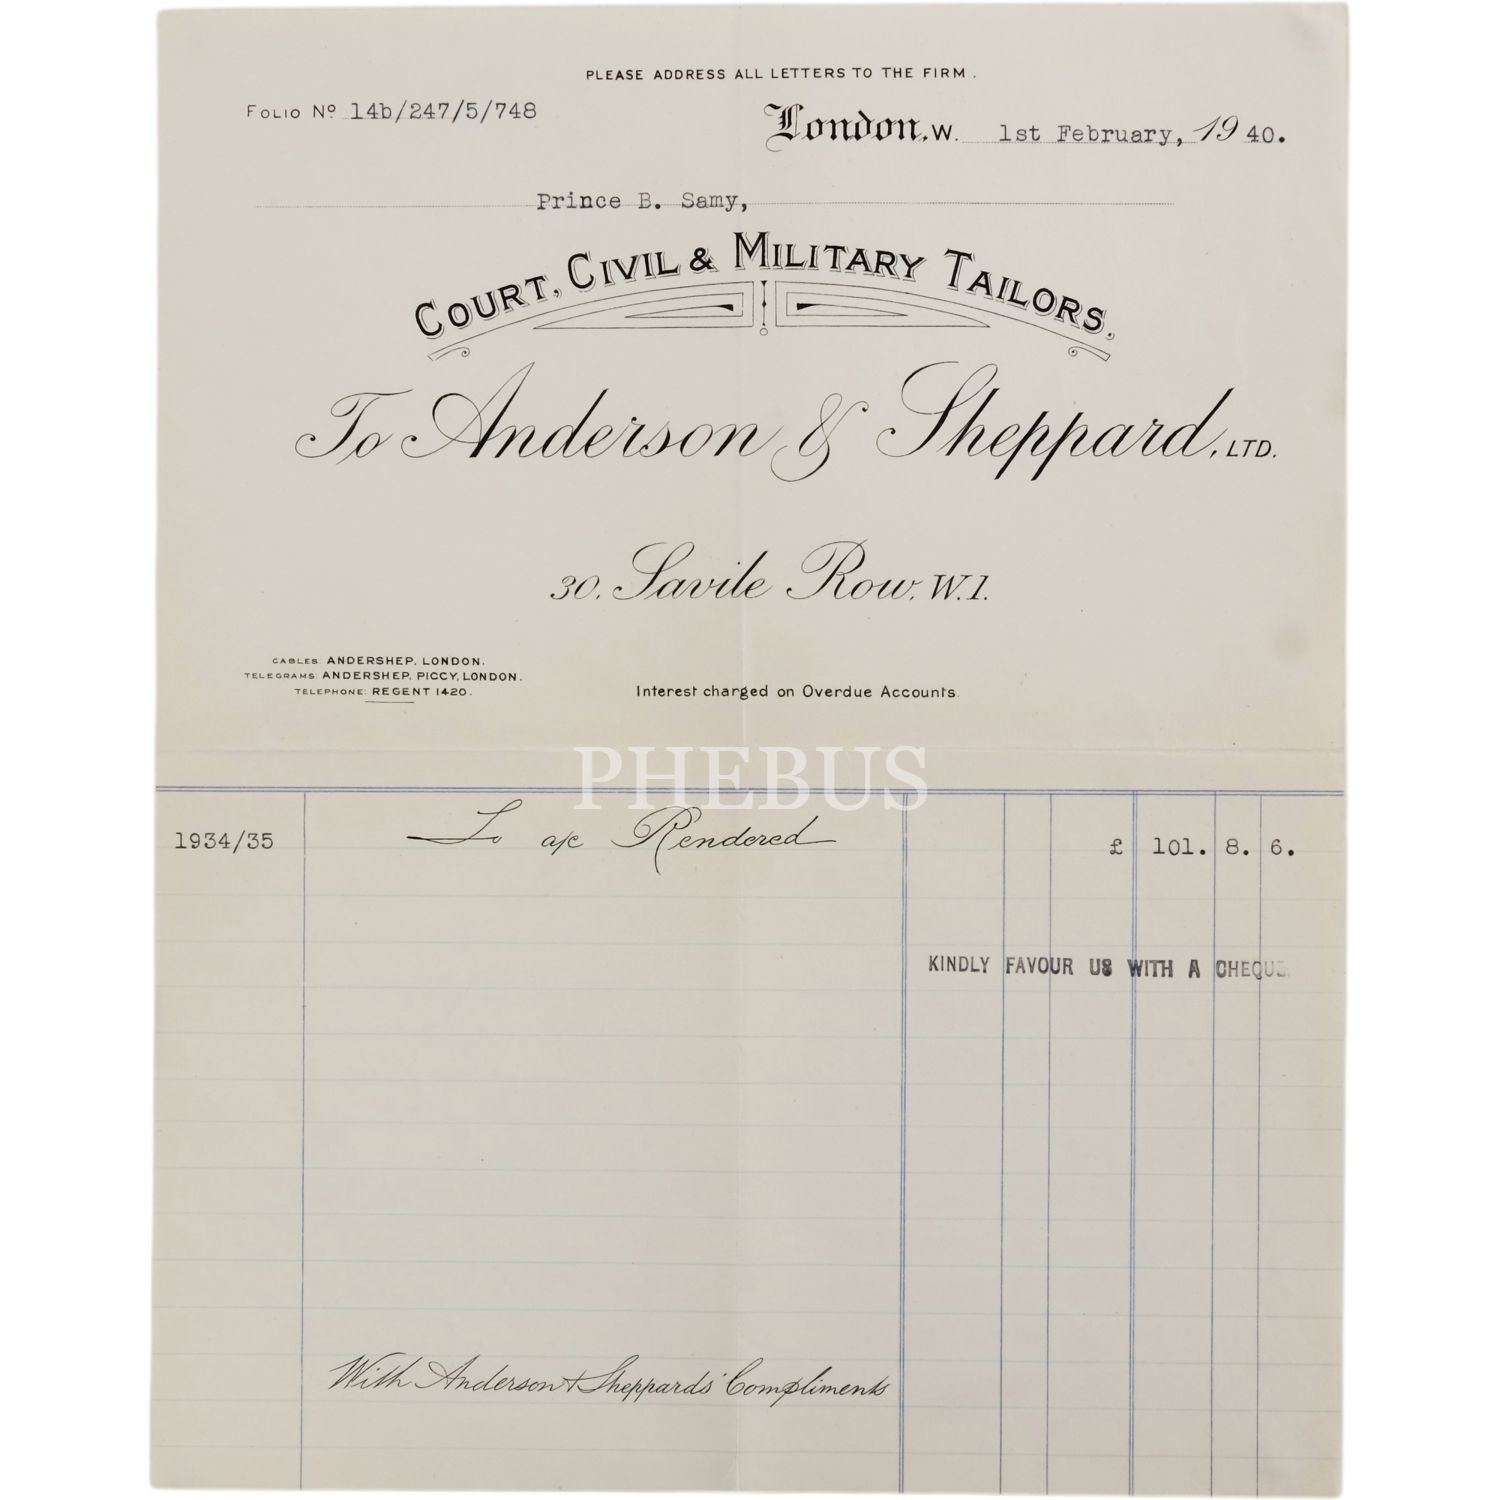 PLEASE ADDRESS ALL LETTERS TO THE FIRM.
FOLIO Nº 14b/247/5/748
London, W. 1st February, 1940.
Prince B. Samy,
COURT, CIVIL & MILITARY TAILORS.
To Anderson & Sheppard, LTD.
30, Savile Row, W.1.
CABLES: ANDERSHEP, LONDON.
TELEGRAMS: ANDERSHEP, PICCY, LONDON.
TELEPHONE: REGENT 1420.
Interest charged on Overdue Accounts.
PHEBUS
1934/35 To a/c Rendered £ 101. 8. 6.
KINDLY FAVOUR US WITH A CHEQUE.
With Anderson & Sheppards' Compliments